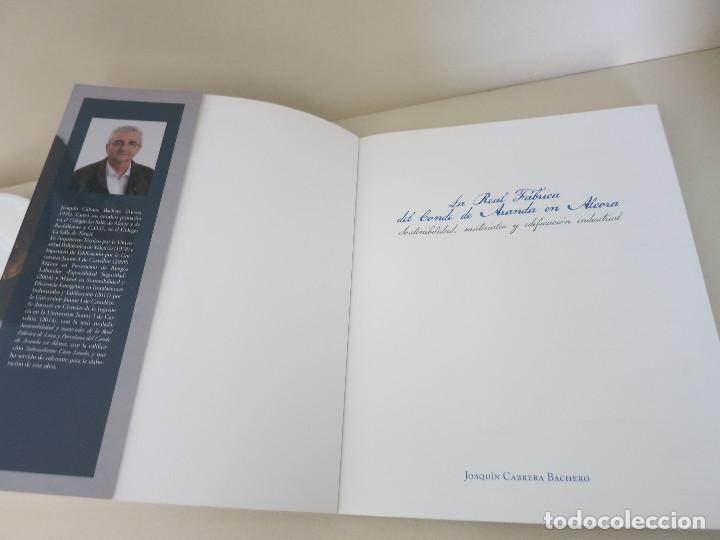 Joaquín Cabrera Bachero (Alcora,
1956). Cursó sus estudios primarios
en el Colegio La Salle de Alcora y de
Bachillerato y C.O.U. en el Colegio
La Salle de Teruel.
Es Arquitecto Técnico por la Univer-
sidad Politécnica de Valencia (1978) e
Ingeniero de Edificación por la Uni-
versitat Jaume I de Castellón (2009).
Máster en Prevención de Riesgos
Laborales -Especialidad Seguridad-
(2004) y Máster en Sostenibilidad y
Eficiencia Energética en Instalaciones
Industriales y Edificación (2011) por
la Universitat Jaume I de Castellón.
Se doctoró en Ciencias de la Ingenie-
ría en la Universitat Jaume I de Cas-
tellón (2014), con la tesis titulada:
Sostenibilidad y materiales de la Real
Fábrica de Loza y Porcelana del Conde
de Aranda en Alcora, con la califica-
ción Sobresaliente Cum Laude, y que
ha servido de referente para la elabo-
ración de esta obra.
La Real Fábrica
del Conde de Aranda en Alcora
Sostenibilidad, materiales y edificación industrial
Joaquín Cabrera Bachero
todocoleccion